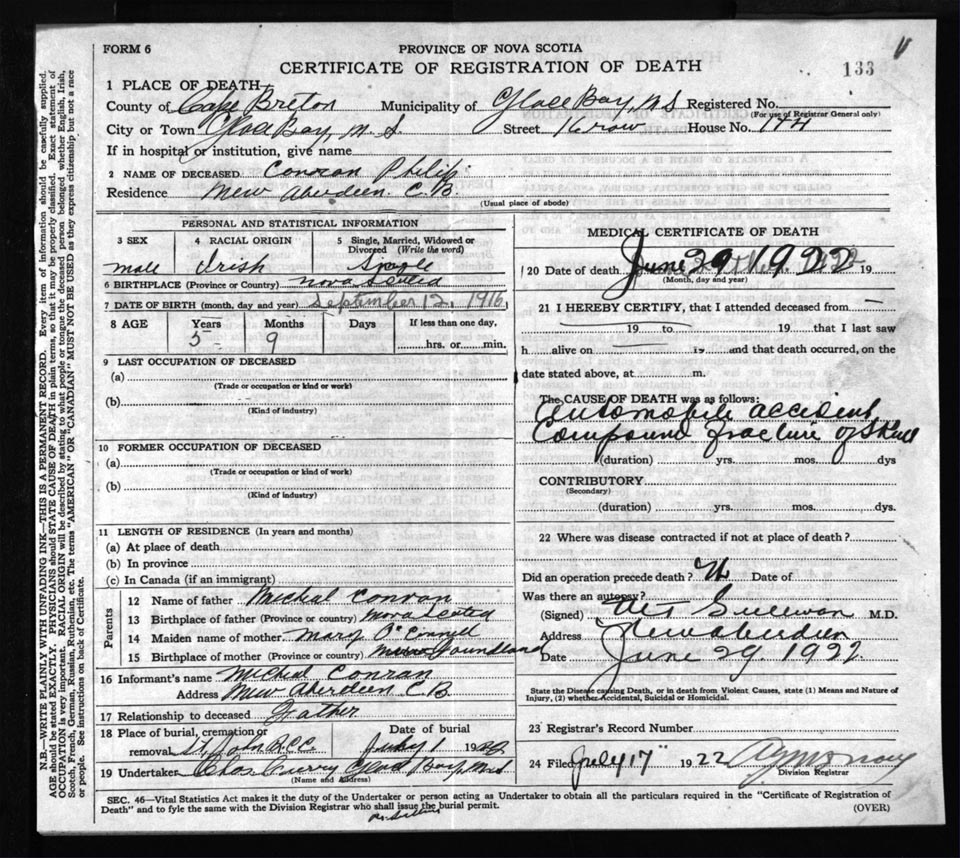 FORM 6
PROVINCE OF NOVA SCOTIA
CERTIFICATE OF REGISTRATION OF DEATH
133
1 PLACE OF DEATH
County of Cape Breton Municipality of Glace Bay, N S Registered No.
(For use of Registrar General only)
City or Town Glace Bay, N. S. Street House No.
If in hospital or institution, give name
2 NAME OF DECEASED Conran Philip
Residence New Aberdeen C.B.
(Usual place of abode)
PERSONAL AND STATISTICAL INFORMATION
3 SEX
male
4 RACIAL ORIGIN
Irish
5 Single, Married, Widowed or Divorced (Write the word)
Single
6 BIRTHPLACE (Province or Country) Nova Scotia
7 DATE OF BIRTH (month, day and year) September 12, 1916
8 AGE
Years
5
Months
9
Days
If less than one day,
hrs. or min.
9 LAST OCCUPATION OF DECEASED
(a)
(Trade or occupation or kind of work)
(b)
(Kind of industry)
10 FORMER OCCUPATION OF DECEASED
(a)
(Trade or occupation or kind of work)
(b)
(Kind of industry)
11 LENGTH OF RESIDENCE (In years and months)
(a) At place of death
(b) In province
(c) In Canada (if an immigrant)
Parents
12 Name of father Michal Conran
13 Birthplace of father (Province or country) Nova Scotia
14 Maiden name of mother Mary O'Connell
15 Birthplace of mother (Province or country)
16 Informant's name Michal Conran
Address New Aberdeen C B
17 Relationship to deceased Father
18 Place of burial, cremation or removal St John R.C.C.
Date of burial
July 1 1922
19 Undertaker Chas Curry Glace Bay, N S
(Name and Address)
MEDICAL CERTIFICATE OF DEATH
20 Date of death June 29 1922 19
(Month, day and year)
21 I HEREBY CERTIFY, that I attended deceased from
19 to 19 that I last saw
h alive on 19 and that death occurred, on the
date stated above, at m.
The CAUSE OF DEATH was as follows:
Automobile accident
Compound fracture of Skull
(duration) yrs. mos. dys
CONTRIBUTORY
(Secondary)
(duration) yrs. mos. dys.
22 Where was disease contracted if not at place of death?
Did an operation precede death? No Date of
Was there an autopsy?
(Signed) Sullivan M.D.
Address New Aberdeen
Date June 29. 1922.
State the Disease causing Death, or in death from Violent Causes, state (1) Means and Nature of
Injury, (2) whether Accidental, Suicidal or Homicidal.
23 Registrar's Record Number
24 Filed July 17 1922
Division Registrar
SEC. 46—Vital Statistics Act makes it the duty of the Undertaker or person acting as Undertaker to obtain all the particulars required in the "Certificate of Registration of
Death" and to fyle the same with the Division Registrar who shall issue the burial permit.
(OVER)
N.B.—WRITE PLAINLY WITH UNFADING INK—THIS IS A PERMANENT RECORD. Every item of information should be carefully supplied.
AGE should be stated EXACTLY. PHYSICIANS should STATE CAUSE OF DEATH in plain terms, so that it may be properly classified. Exact statement of
OCCUPATION is very important. RACIAL ORIGIN will be described by stating to what people or tongue the deceased person belonged whether English, Irish,
Scotch, French, German, Russian, Ruthenian, etc. The terms "AMERICAN" OR "CANADIAN" MUST NOT BE USED as they express citizenship but not a race
or people. See instructions on back of Certificate.